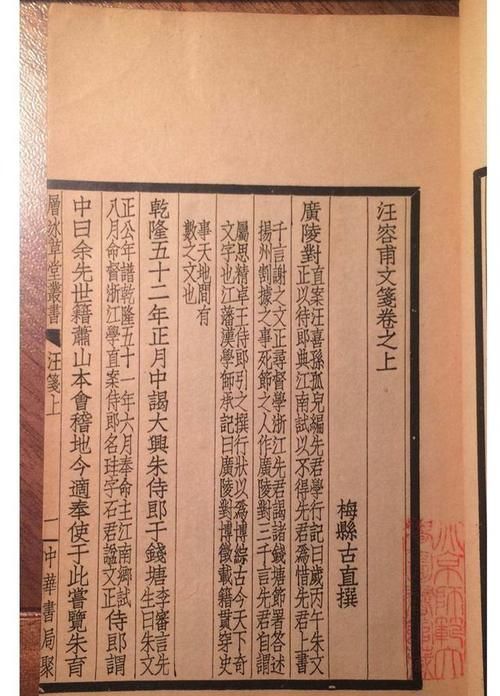 汪容甫文箋卷之上
梅縣古直撰
廣陵對直案汪喜孫孤兒編先君學行記曰歲丙午朱文
正以侍郎典江南試以不得先君爲惜先君上書
千言謝之文正尋督學浙江先君謁諸錢塘節署答述
揚州割據之事死節之人作廣陵對三千言先君自謂
屬思精卓王侍郎引之撰行狀以為博綜古今天下奇
文字也江藩漢學師承記曰廣陵對博徵載籍貫穿史
事天地間有
數之文也
乾隆五十二年正月中謁大興朱侍郎于錢塘李審言先
生曰朱文
正公年譜乾隆五十一年六月奉命主江南鄉試
八月命督浙江學直案侍郎名珪字石君諡文正侍郎謂
中曰余先世籍蕭山本會稽地今適奉使于此嘗覽朱育
層冰草堂叢書
汪箋上
一
中華書局聚